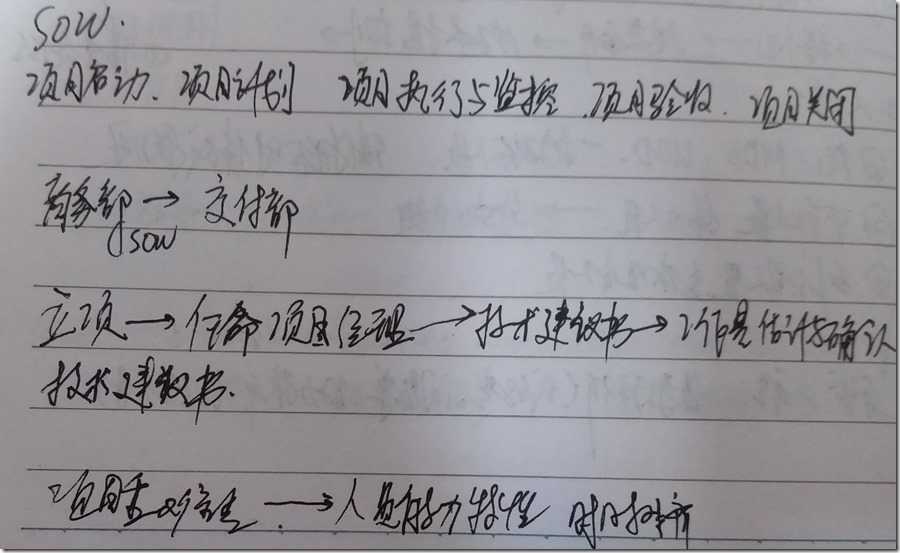 SOW.
项目启动、项目计划 项目执行与监控、项目验收、项目关闭
商务部 → 交付部
SOW
立项 → 任命项目经理 → 技术建议书 → 工作量估计与确认
技术建议书.
项目 → 人员能力特性 时时更新